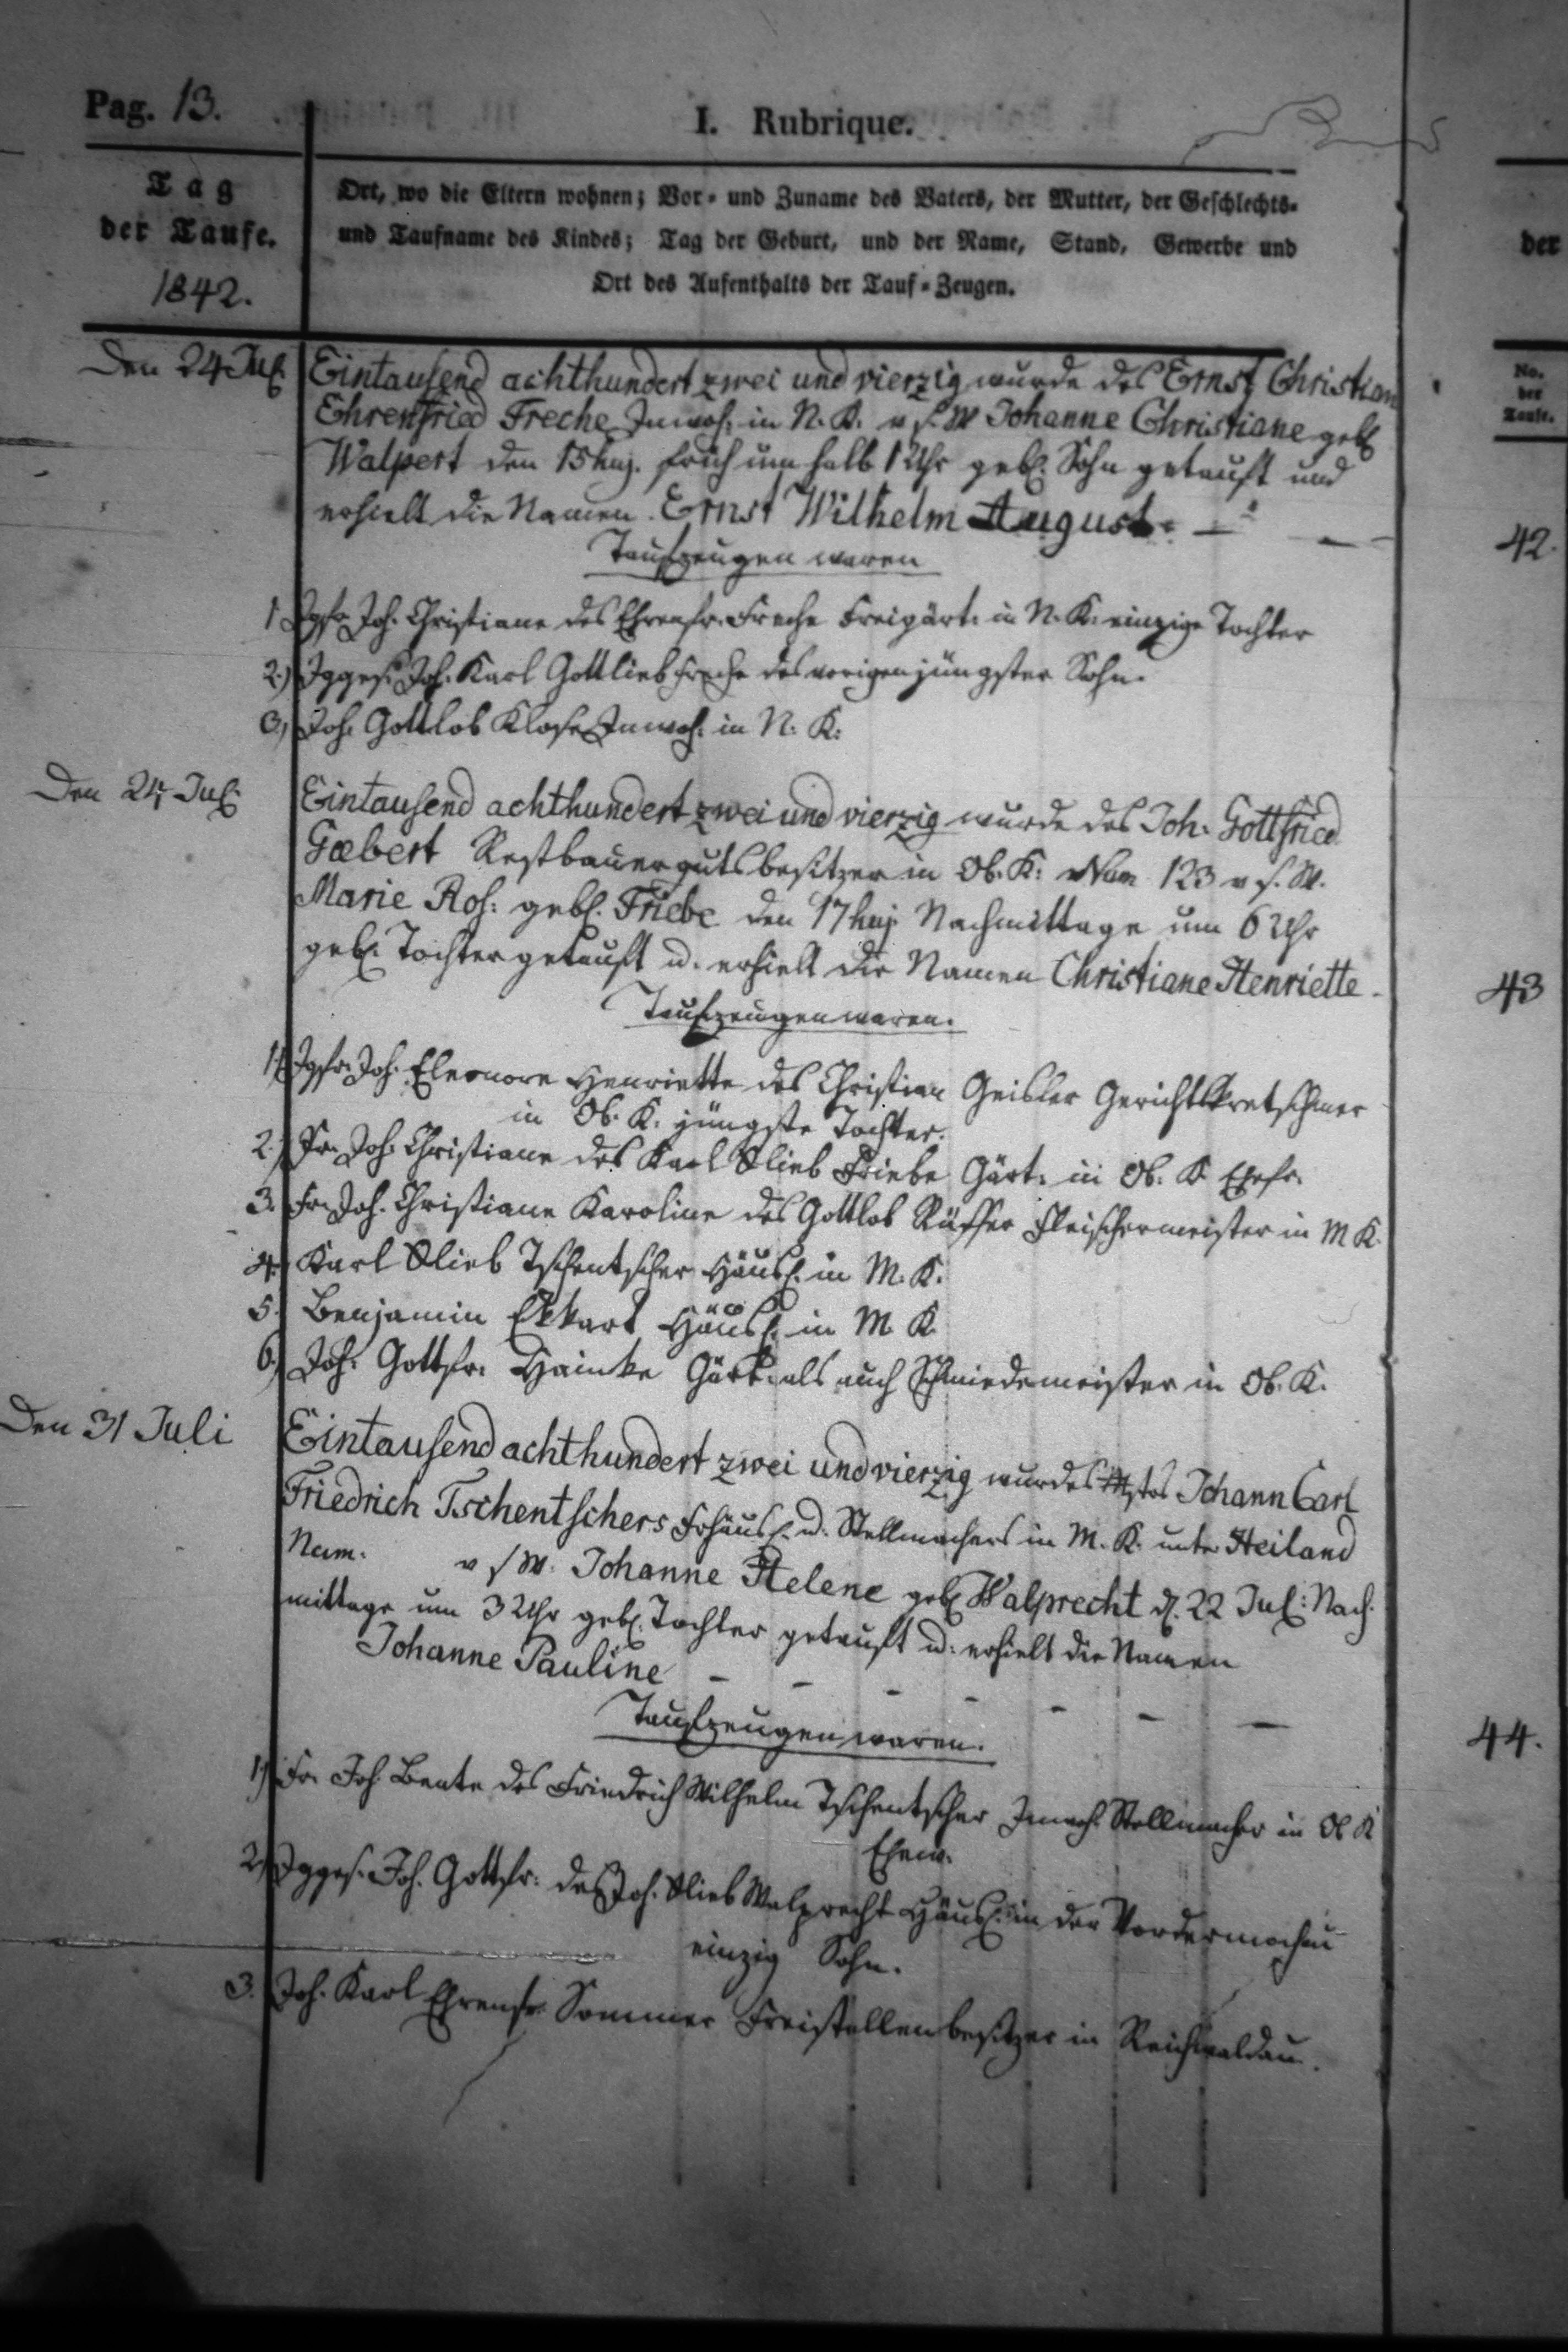 Pag. 13.
I. Rubrique.
Tag
der Taufe.
1842.
Ort, wo die Eltern wohnen; Vor- und Zuname des Vaters, der Mutter, der Geschlechts-
und Taufname des Kindes; Tag der Geburt, und der Name, Stand, Gewerbe und
Ort des Aufenthalts der Tauf-Zeugen.
der
No.
der
Taufe.
Den 24 Jul.
Eintausend achthundert zwei und vierzig wurde des Ernst Christian
Ehrenfried Freche Inwoh: in N. K. v s. W Johanne Christiane geb
Walpert den 15 huj. früh um halb 1 Uhr geb. Sohn getauft und
erhielt die Namen. Ernst Wilhelm August.
42.
Taufzeugen waren
1 Jgfr Joh. Christiane des Ehrenfr. Freche Freigärt: in N. K: einzige Tochter
2.) Jgges. Joh. Karl Gottlieb Freche des vorigen jüngster Sohn.
3) Joh. Gottlob Klose Inwoh: in N: K:
Den 24 Jul.
Eintausend achthundert zwei und vierzig wurde des Joh. Gottfried
Gæbert Restbauergutsbesitzer in Ob. K: Num 123 v s. W.
Marie Ros: geb. Friebe den 17 huj Nachmittage um 6 Uhr
geb. Tochter getauft u. erhielt die Namen Christiane Henriette
43
Taufzeugen waren.
1. Jgfr. Joh. Eleonore Henriette des Christian Geisler Gerichtskretschmer
in Ob. K. jüngste Tochter.
2.) Fr. Joh. Christiane des Karl Glieb Friebe Gärt: in Ob. K Ehefr.
3. Fr. Joh. Christiane Karoline des Gottlob Rüffer Fleischermeister in M K.
4. Karl Glieb Tschentscher Häusl. in M. K.
5. Benjamin Ekkart Häusl. in M. K
6.) Joh. Gottfr. Hainke Gärt. als auch Schmiedemeister in Ob. K.
Den 31 Juli
Eintausend achthundert zwei und vierzig wurde des Mstrs Johann Carl
Friedrich Tschentschers Frhäusl. u. Stellmachers in M. K. unter Heiland
Num. v s W. Johanne Helene geb Walprecht d. 22 Jul: Nach
mittage um 3 Uhr geb. Tochter getauft u. erhielt die Namen
Johanne Pauline
44.
Taufzeugen waren.
1) Fr. Joh Beate des Friedrich Wilhelm Tschentscher Inwoh: Stellmacher in Ob K
Ehew.
2) Jgges. Joh. Gottfr. des Joh. Glieb Walprecht Häusl. in der Vordermochau
einzig Sohn.
3. Joh. Karl Ehrenfr Sommer Freistellenbesitzer in Reichwaldau.